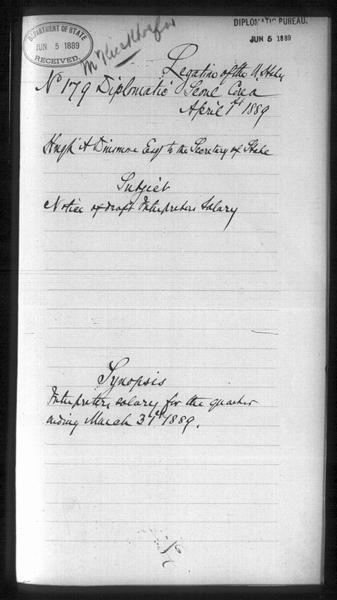 DEPARTMENT OF STATE
JUN 5 1889
RECEIVED.
DIPLOMATIC BUREAU.
JUN 5 1889
Legation of the U. States
No 179 Diplomatic Seoul Corea
April 1st 1889
Hugh A Dinsmore Esq to the Secretary of State
Subject
Notice of draft Interpreters Salary
Synopsis
Interpreters salary for the quarter
ending March 31st 1889.